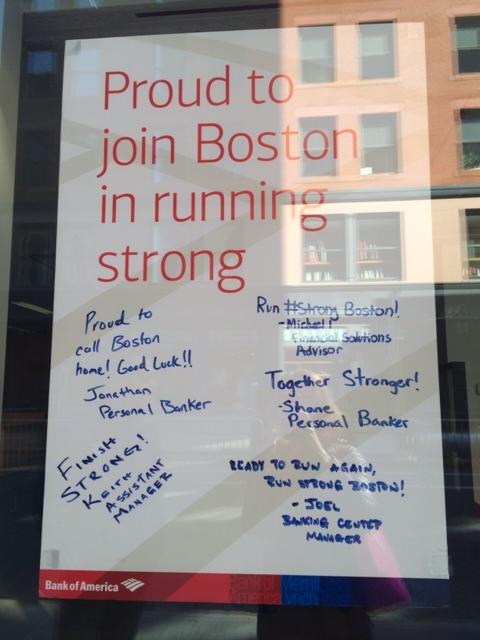 Proud to
join Boston
in running
strong
Proud to
call Boston
home! Good Luck!!
Jonathan
Personal Banker
FINISH
STRONG!
KEITH
ASSISTANT
MANAGER
Run #Strong Boston!
Financial Solutions
Advisor
Together Stronger!
-Shane
Personal Banker
READY TO RUN AGAIN,
RUN STRONG BOSTON!
- JOEL
BANKING CENTER
MANAGER
Bank of America
Bank of Merrill
America Lynch